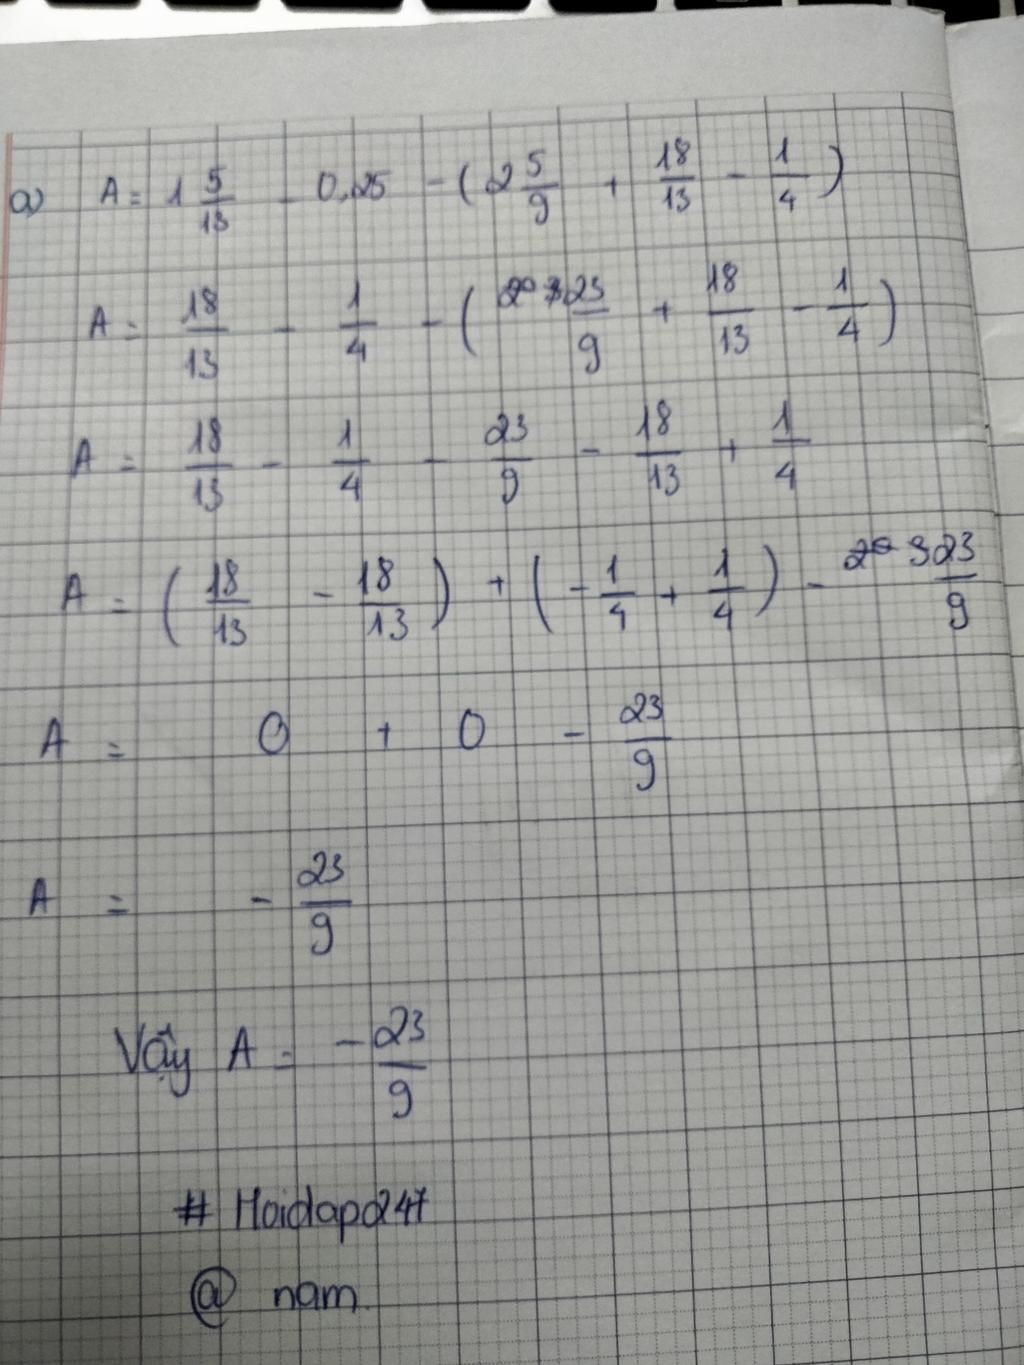 a) A = 1 5/13 - 0,25 - (2 5/9 + 18/13 - 1/4)
A = 18/13 - 1/4 - (23/9 + 18/13 - 1/4)
A = 18/13 - 1/4 - 23/9 - 18/13 + 1/4
A = (18/13 - 18/13) + (-1/4 + 1/4) - 23/9
A = 0 + 0 - 23/9
A = - 23/9
Vậy A = - 23/9
# Hoidap247
@ nam.